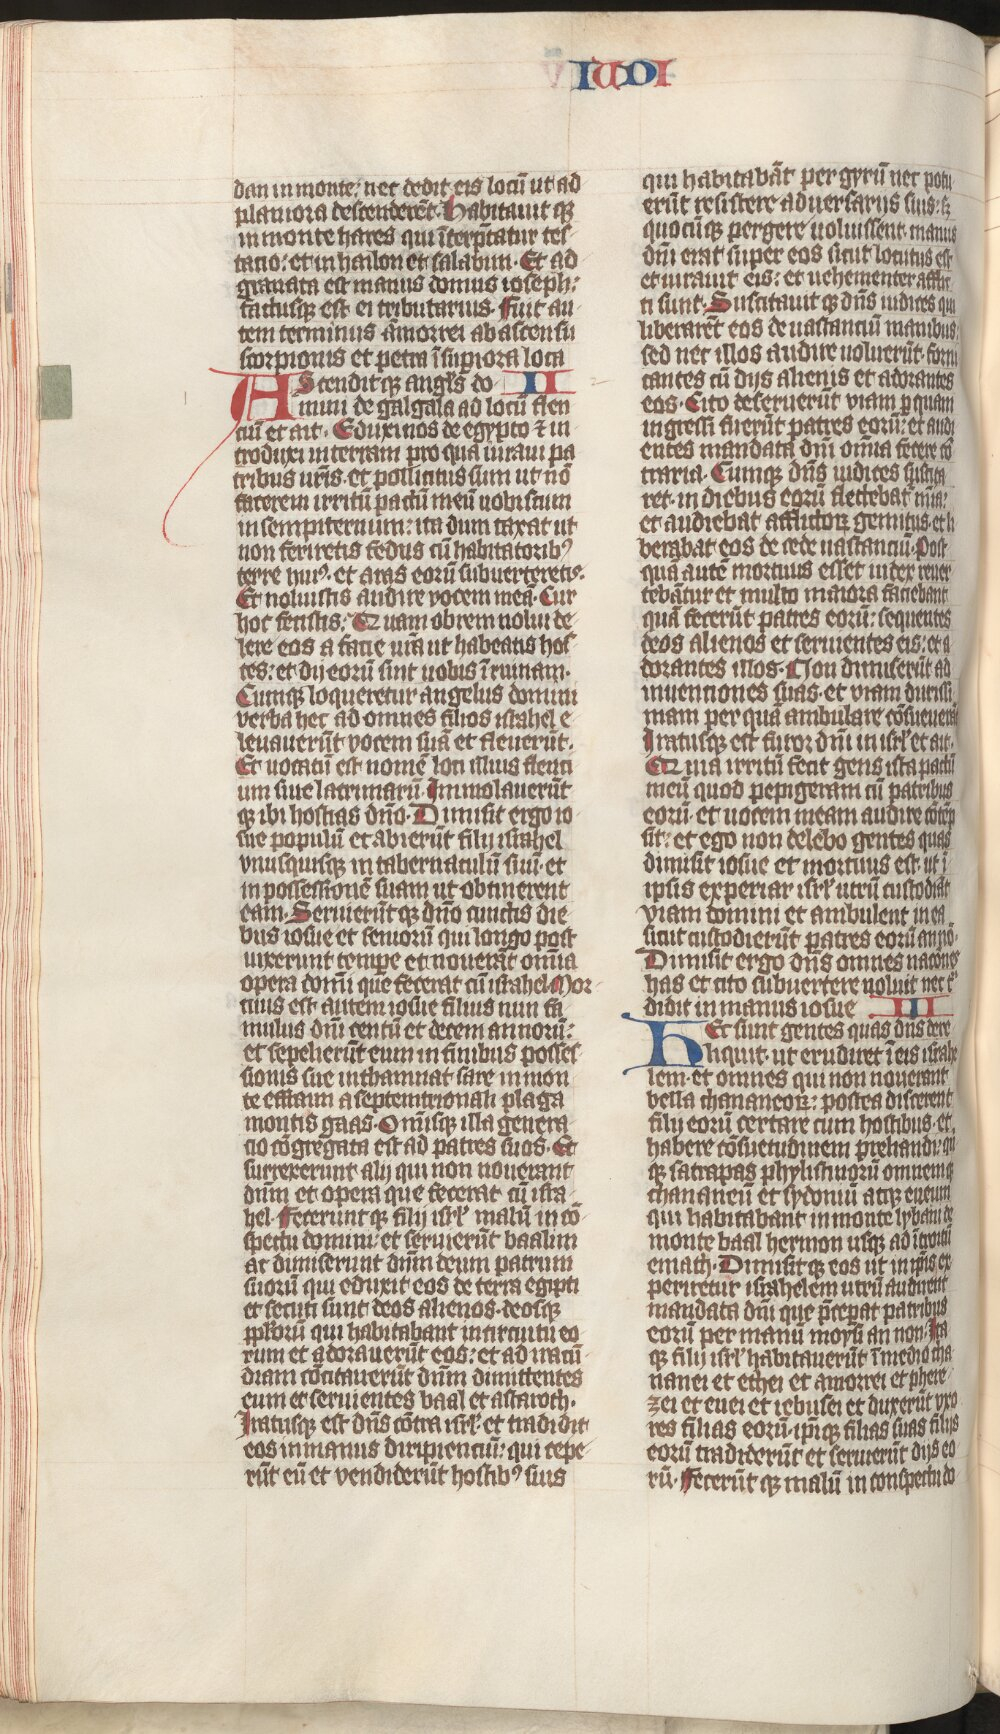 IUDI
dan in monte: nec dedit eis locū ut ad
planiora descenderēt. Habitauit qꝫ
in monte hares qui īterp̄tatur tes
tatio: et in hailon et salabim. Et ad
grauata est manus domus ioseph:
factusqꝫ est ei tributarius. Fuit au
tem terminus āmorrei ab ascensu
scorpionis et petra ī supiora loca
AScenditqꝫ angl̄s do II
mini de galgala ad locū flen
ciū et ait. Eduxi uos de egypto ⁊ in
troduxi in terram pro qua iuraui pa
tribus vr̄is. et pollicitus sum ut nō
facerem irritū pactū meū uobiscum
in sempiternum: ita dum taxat ut
non feriretis fedus cū habitatoribꝰ
terre huiꝰ. et aras eorū subuerteretis.
Et noluistis audire vocem meā. Cur
hoc fecistis: Quam obrem nolui de
lere eos a facie vr̄a ut habeatis hos
tes: et dij eorū sint uobis ī ruinam.
Cumqꝫ loqueretur angelus domini
verba hec ad omnes filios israhel e
leuauerūt vocem suā et fleuerūt.
Et uocatū est nomē loci illius flenci
um siue lacrimarū. Immolauerūt
qꝫ ibi hostias dn̄o. Dimisit ergo io
sue populū et abierūt filij israhel
vnusquisqꝫ in tabernaculū suū. et
in possessionē suam ut obtinerent
eam. Seruierūt qꝫ dn̄o cunctis die
bus iosue et seniorū qui longo post
uixerunt tempe et nouerāt om̄ia
opera domi que fecerat cū israhel. Mor
tuus est autem iosue filius nun fa
mulus dn̄i centū et decem annorū:
et sepelierūt eum in finibus posses
sionis sue in thamnat sare in mon
te effraim a septemtrionali plaga
montis gaas. Omīsqꝫ illa genera
cio cōgregata est ad patres suos. Et
surrexerunt alij qui non nouerant
dn̄m et opera que fecerat cū isra
hel. Fecerunt qꝫ filij isrl̄ malū in cō
spectu domini: et seruierūt baalim
ac dimiserunt dn̄m deum patrum
suorū qui eduxit eos de terra egipti
et secuti sunt deos alienos. deosqꝫ
ppl̄orū qui habitabant in circuitu eo
rum et adorauerūt eos: et ad iracū
diam cōcitauerūt dn̄m dimittentes
eum et seruientes baal et astaroth.
Iratusqꝫ est dn̄s cōtra isrl̄. et tradidit
eos in manus diripienciū: qui cepe
rūt eū et vendiderūt hostibꝰ suis
qui habitabāt per gyrū nec potu
erūt resistere aduersarijs suis: sꝫ
quocūqꝫ pergere uoluissent. manus
dn̄i erat super eos sicut locutus est
et iurauit eis: et uehementer afflic
ti sunt. Suscitauit qꝫ dn̄s iudices qui
liberarēt eos de uastanciū manibus:
sed nec illos audire uoluerūt. forni
cantes cū dijs alienis et adorantes
eos. Cito deseruerūt viam p quam
ingressi fuerūt patres eorū: et audi
entes mandata dn̄i om̄ia fecere cō
traria. Cumqꝫ dn̄s iudices suscita
ret. in diebus eorū flectebat̄ mīa:
et audiebat afflictoꝝ gemitus. et li
berabat eos de cede uastanciū. Post
quā autē mortuus esset iudex reuer
tebātur et multo maiora faciebant
quā fecerūt patres eorū: sequentes
deos alienos et seruientes eis: et a
dorantes illos. Non dimiserūt ad
inuentiones suas. et viam durissi
mam per quā ambulare cōsueuerāt
Iratusqꝫ est furor dn̄i in isrl̄ et ait.
Quia irritū fecit gens ista pactū
meū quod pepigeram cū patribus
eorū. et uocem meam audire cōtēp
sit: et ego non delebo gentes quas
dimisit iosue et mortuus est. ut ī
ipsis experiar isrl̄ utrū custodiāt
viam domini et ambulent in ea
sicut custodierūt patres eorū an nō.
Dimisit ergo dn̄s omnes naciones
has et cito subuertere noluit nec t̄
didit in manus iosue III
Hec sunt gentes quas dn̄s dere
liquit. ut erudiret ī eis israhe
lem. et omnes qui non nouerant
bella chananeoꝝ: postea discerent
filij eorū certare cum hostibus. et
habere cōsuetudinem preliandi: qui
qꝫ satrapas phylistinorū omnemqꝫ
chananeū et sydoniū atqꝫ eueum
qui habitabant in monte lybani de
monte baal hermon usqꝫ ad ītroitū
emath. Dimisit qꝫ eos ut in ip̄is ex
periretur israhelem utrū audirent
mandata dn̄i que p̄ceperat patribus
eorū per manū moysi an non. Ita
qꝫ filij isrl̄ habitauerūt ī medio cha
nanei et ethei et amorrei et phere
zei et euei et iebusei et duxerūt vxo
res filias eorū. ip̄iqꝫ filias suas filijs
eorū tradiderūt et seruierūt dijs eo
rū. Fecerūt qꝫ malū in conspectu do